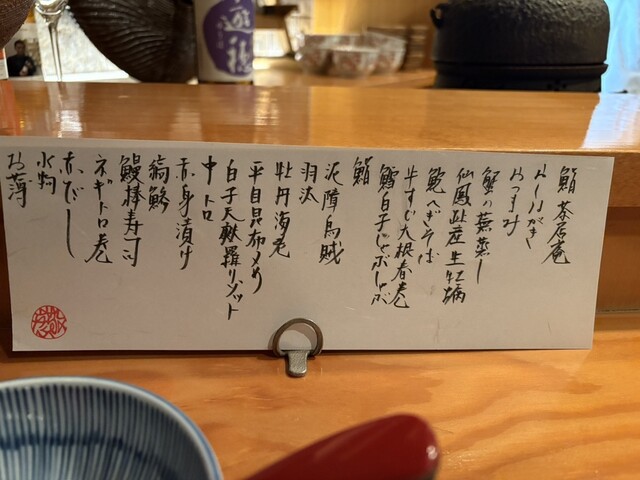 鮨 茶居庵
おしながき
おつまみ
蟹の蕪蒸し
仙鳳趾産生牡蠣
鮑へぎそば
牛すじ大根春巻
鱈白子しゃぶしゃぶ
鮨
泥障烏賊
羽汰
牡丹海老
平目昆布〆め
白子天麩羅リゾット
中トロ
赤身漬け
縞鯵
鰻棒寿司
ネギトロ巻
赤だし
水物
お薄
遊穂